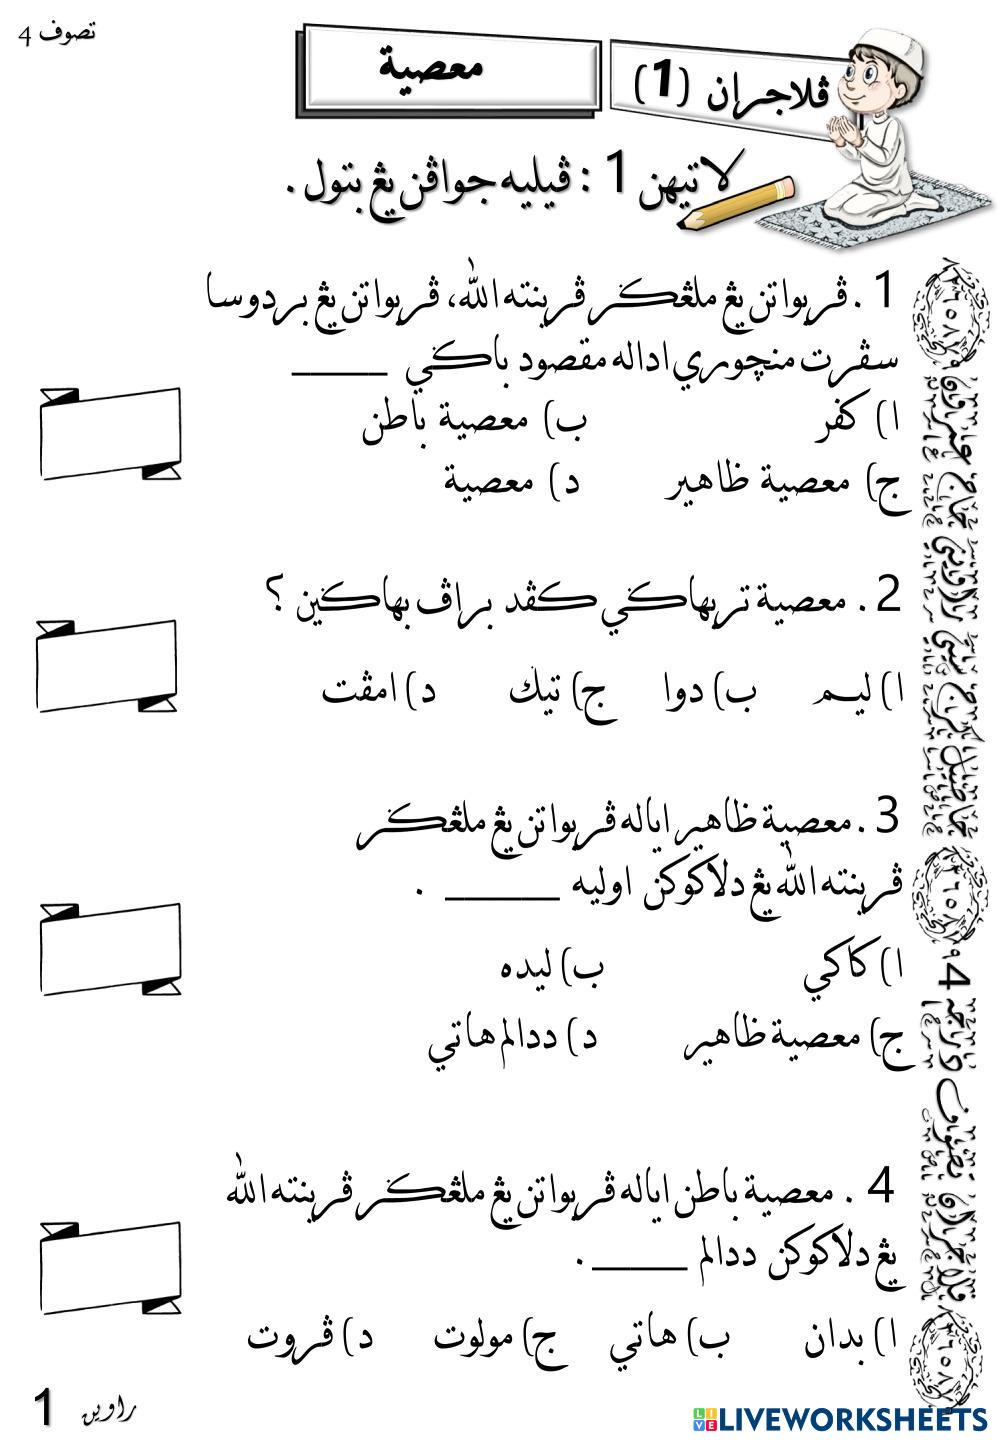 تصوف 4
ڤلاجران (1)
معصية
لاتيهن 1 : ڤيليه جواڤن يڠ بتول .
1 . ڤربواتن يڠ ملڠݢر ڤرينته الله، ڤربواتن يڠ بردوسا
سڤرت منچوري اداله مقصود باݢي ______
ا) كفر ب) معصية باطن
ج) معصية ظاهير د) معصية
2 . معصية تربهاݢي كڤد براڤ بهاݢين ؟
ا) ليم ب) دوا ج) تيݢ د) امڤت
3 . معصية ظاهير اياله ڤربواتن يڠ ملڠݢر
ڤرينته الله يڠ دلاكوكن اوليه ______ .
ا) كاكي ب) ليده
ج) معصية ظاهير د) ددالم هاتي
4 . معصية باطن اياله ڤربواتن يڠ ملڠݢر ڤرينته الله
يڠ دلاكوكن ددالم _____ .
ا) بدان ب) هاتي ج) مولوت د) ڤروت
راوين 1
LIVEWORKSHEETS